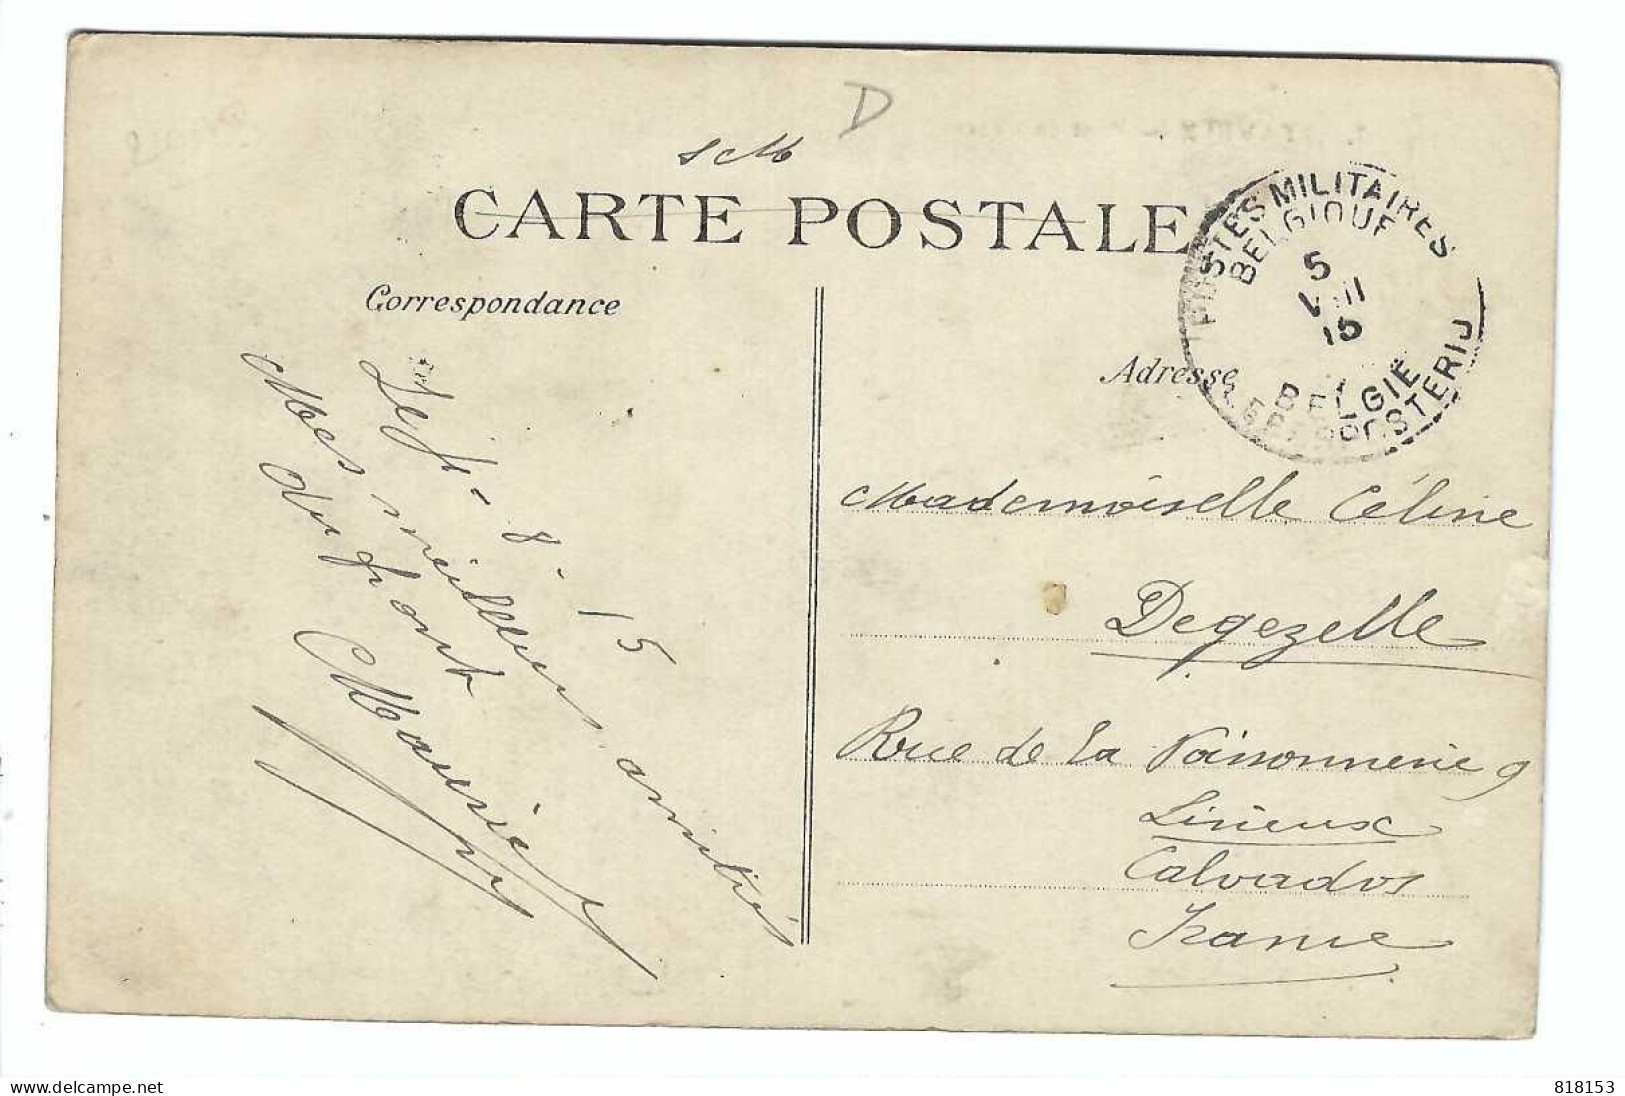 D
SM
CARTE POSTALE
POSTES MILITAIRES
BELGIQUE
5
VIII
15
BELGIË
LEGERPOSTERIJ
Correspondance
Le 4-8-15
Mes meilleures amitiés
du front
Maurice
Adresse
Mademoiselle Céline
Degezelle
Rue de la Poissonnerie 9
Lisieux
Calvados
France
delcampe.net
cartedantan
818153